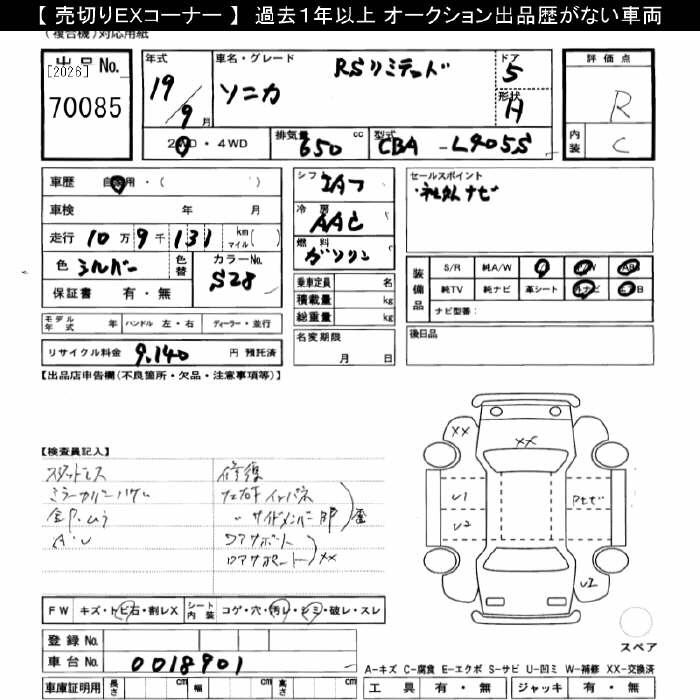 【 売切りEXコーナー 】 過去１年以上 オークション出品歴がない車両
(複合機)対応用紙
出品No. [2026] 70085
年式 19/9月
車名・グレード ソニカ RSリミテッド
ドア 5
形状 H
2WD・4WD
排気量 650 cc
型式 CBA-L405S
評価点 R
内装 C
車歴 自家用・( )
車検 年 月
走行 10万9千131 km マイル( )
色 シルバー 色替 カラーNo. S28
保証書 有・無
シフト IAT
冷房 AAC
燃料 ガソリン
乗車定員 名
積載量 kg
総重量 kg
セールスポイント
・社外ナビ
装備品 S/R 純A/W
純TV 純ナビ 革シート 外ナビ
ナビ型番:
モデル年式 年 ハンドル 左・右 ディーラー・並行
リサイクル料金 9.140 円 預託済
名変期限 月 日
後日品
【出品店申告欄(不良箇所・欠品・注意事項等)】
【検査員記入】
スタッドレス 修復
A・U
XX
XX
XX
U1
U2
U2
FW キズ・トビ石・割レX シート内装 コゲ・穴・汚レ・シミ・破レ・スレ
登録 No.
車台 No. 0018901
車庫証明用 長さ cm 幅 cm 高さ cm
スペア
A－キズ C－腐食 E－エクボ S－サビ U－凹ミ W－補修 XX－交換済
工具 有・無 ジャッキ 有・無